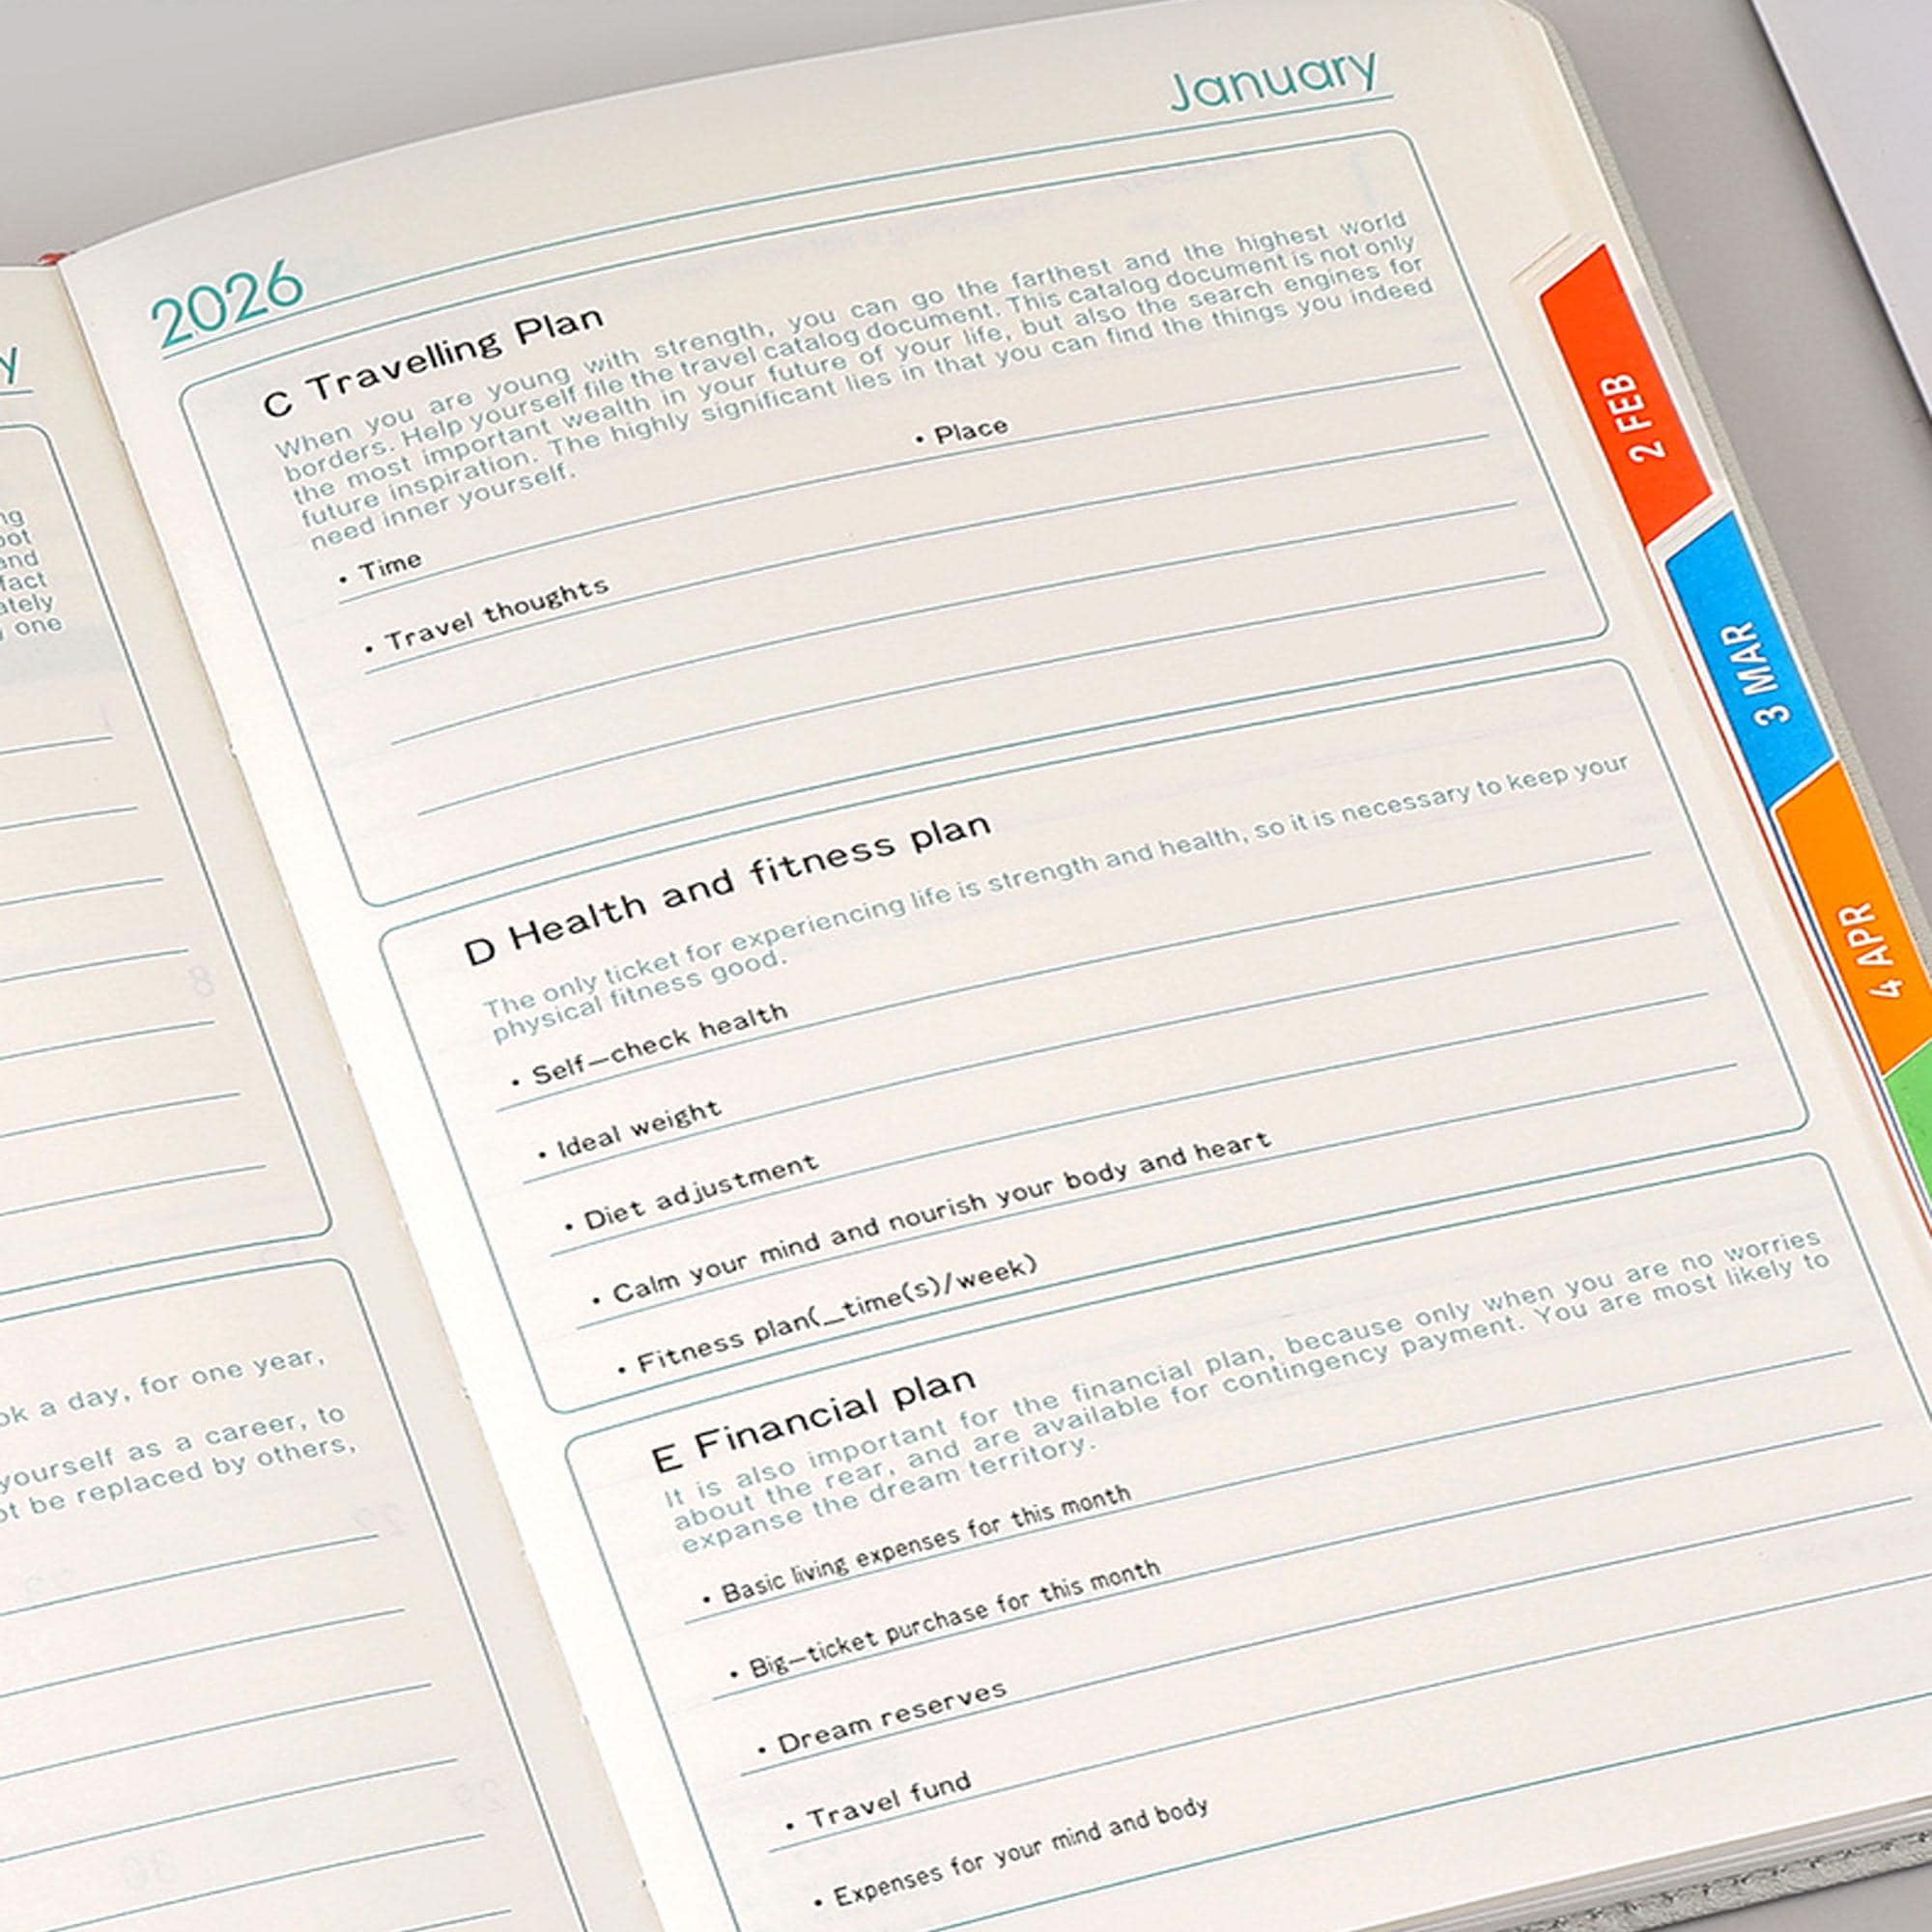 y
ng
oot
and
fact
ately
one
ok a day, for one year,
yourself as a career, to
ot be replaced by others,
2026
January
C Travelling Plan
When you are young with strength, you can go the farthest and the highest world
borders. Help yourself file the travel catalog document. This catalog document is not only
the most important wealth in your future of your life, but also the search engines for
future inspiration. The highly significant lies in that you can find the things you indeed
need inner yourself.
• Time
• Place
• Travel thoughts
D Health and fitness plan
The only ticket for experiencing life is strength and health, so it is necessary to keep your
physical fitness good.
• Self-check health
• Ideal weight
• Diet adjustment
• Calm your mind and nourish your body and heart
• Fitness plan(_time(s)/week)
E Financial plan
It is also important for the financial plan, because only when you are no worries
about the rear, and are available for contingency payment. You are most likely to
expanse the dream territory.
• Basic living expenses for this month
• Big-ticket purchase for this month
• Dream reserves
• Travel fund
• Expenses for your mind and body
2 FEB
3 MAR
4 APR